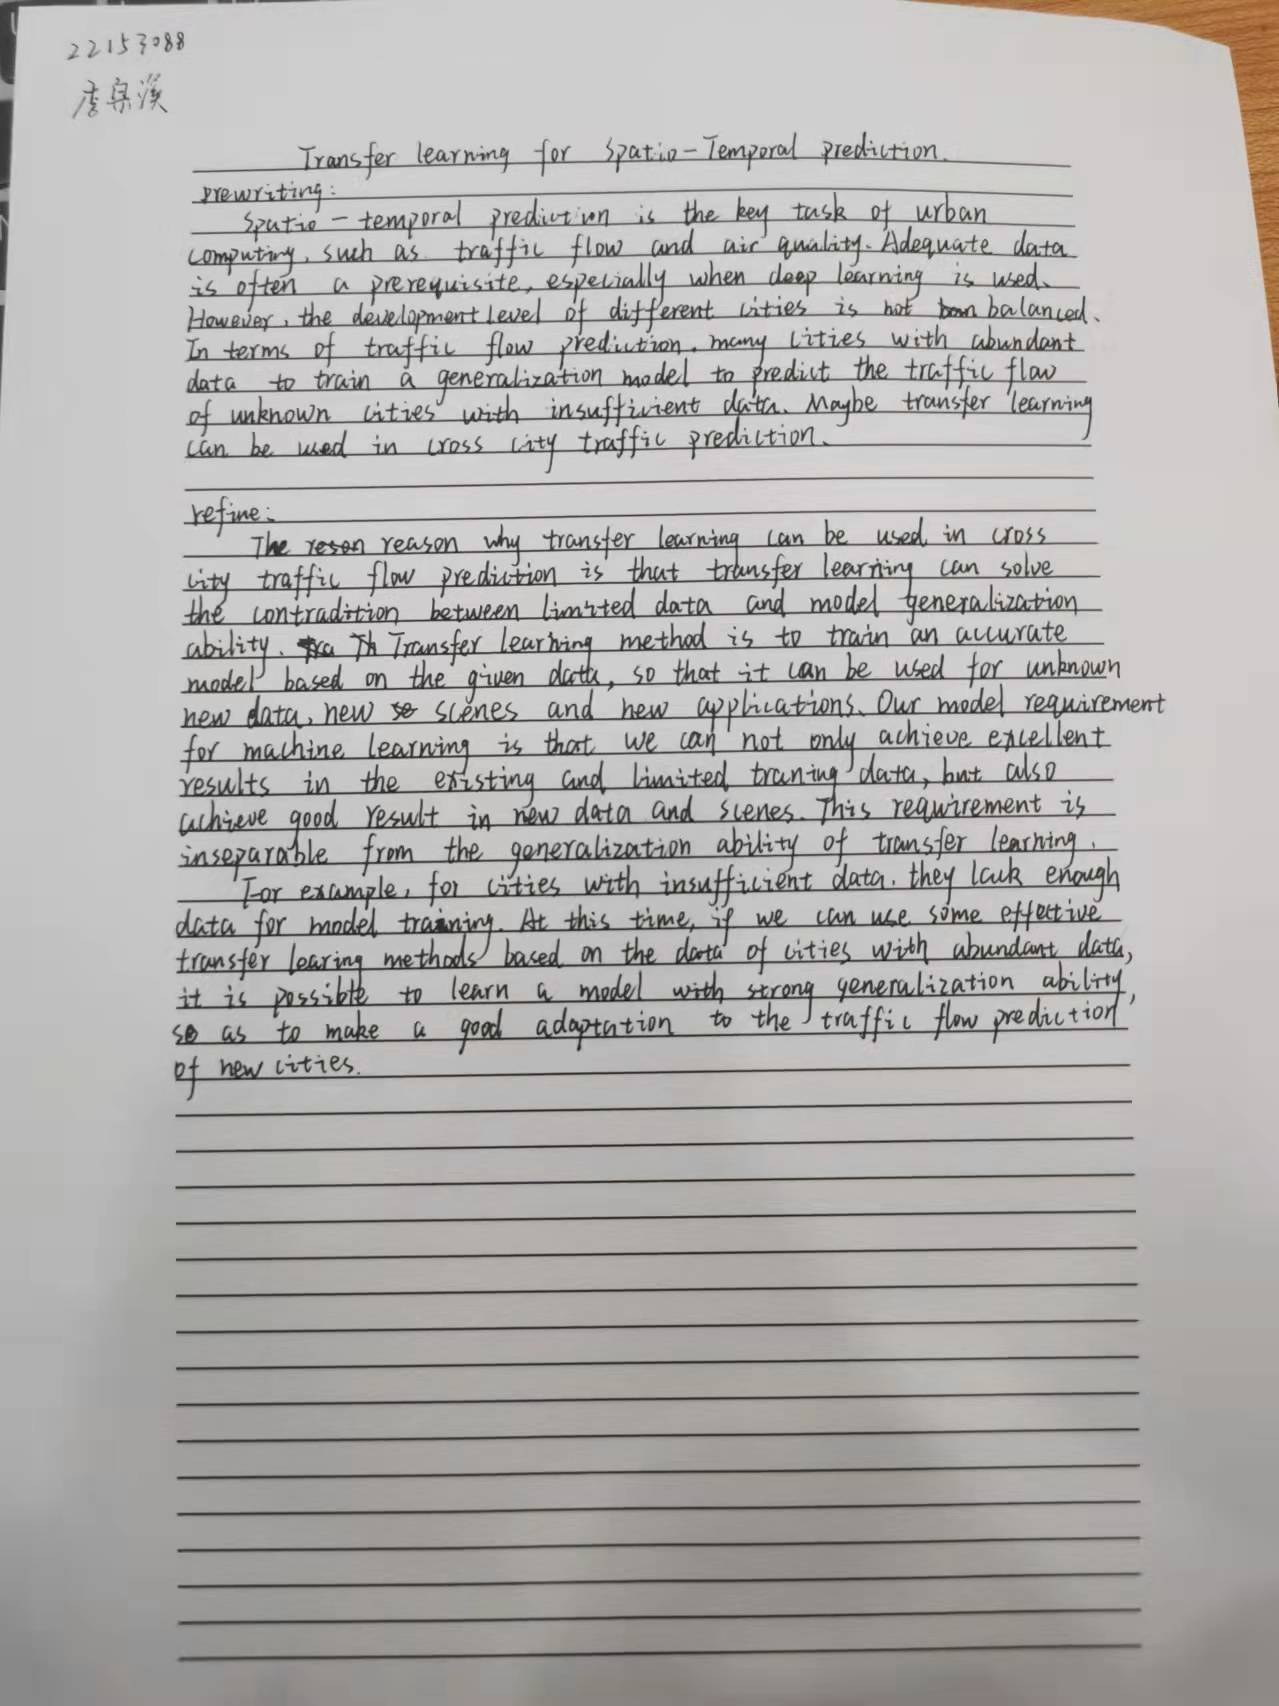 22153088
李
Transfer learning for Spatio-Temporal prediction.
prewriting:
Spatio-temporal prediction is the key task of urban
computing, such as traffic flow and air quality. Adequate data
is often a prerequisite, especially when deep learning is used.
However, the development level of different cities is not balanced.
In terms of traffic flow prediction, many cities with abundant
data to train a generalization model to predict the traffic flow
of unknown cities with insufficient data. Maybe transfer learning
can be used in cross city traffic prediction.
refine:
The reson reason why transfer learning can be used in cross
city traffic flow prediction is that transfer learning can solve
the contradition between limited data and model generalization
ability. Tra Th Transfer learning method is to train an accurate
model based on the given data, so that it can be used for unknown
new data, new se scenes and new applications. Our model requirement
for machine learning is that we can not only achieve excellent
results in the existing and limited traning data, but also
achieve good result in new data and scenes. This requirement is
inseparable from the generalization ability of transfer learning.
For example, for cities with insufficient data, they lack enough
data for model training. At this time, if we can use some effective
transfer learing methods based on the data of cities with abundant data,
it is possible to learn a model with strong generalization ability,
so as to make a good adaptation to the traffic flow prediction
of new cities.